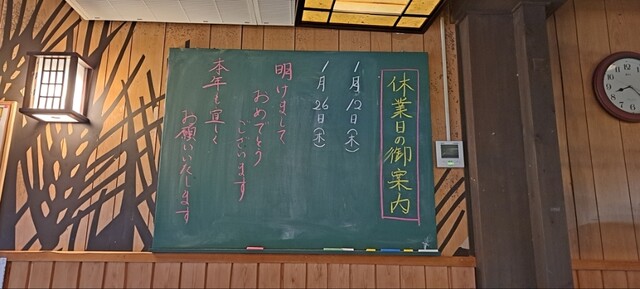 休業日の御案内
1月12日(木)
1月26日(木)
明けまして
おめでとう
ございます
本年も宜しく
お願いいたします